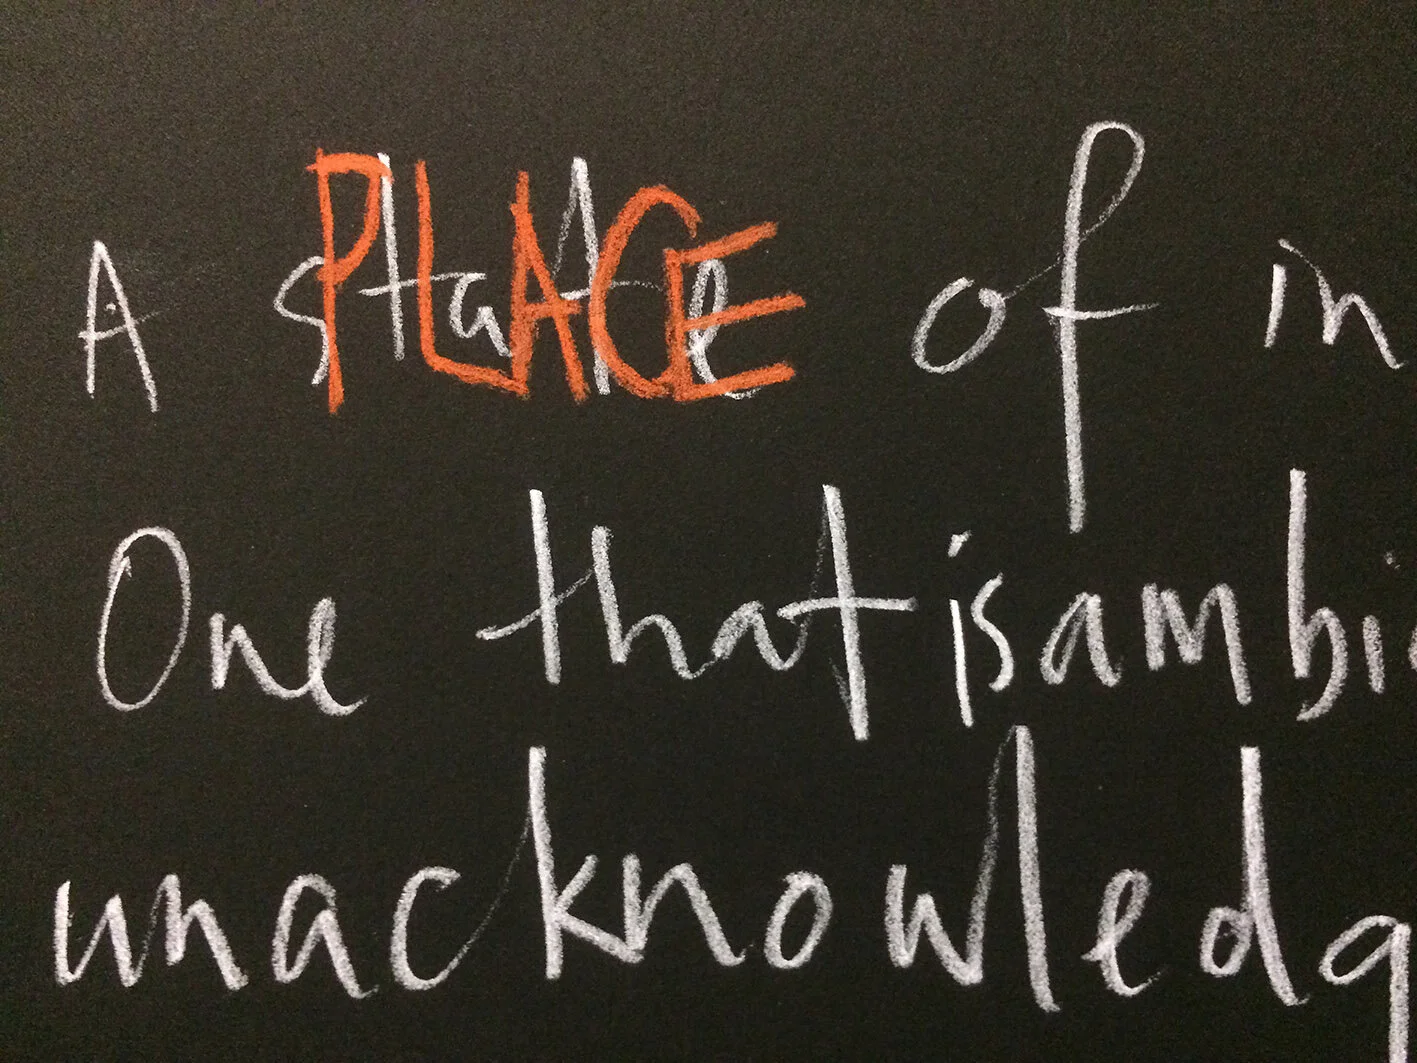 A state PLACE of in
One that is ambi
unacknowledg